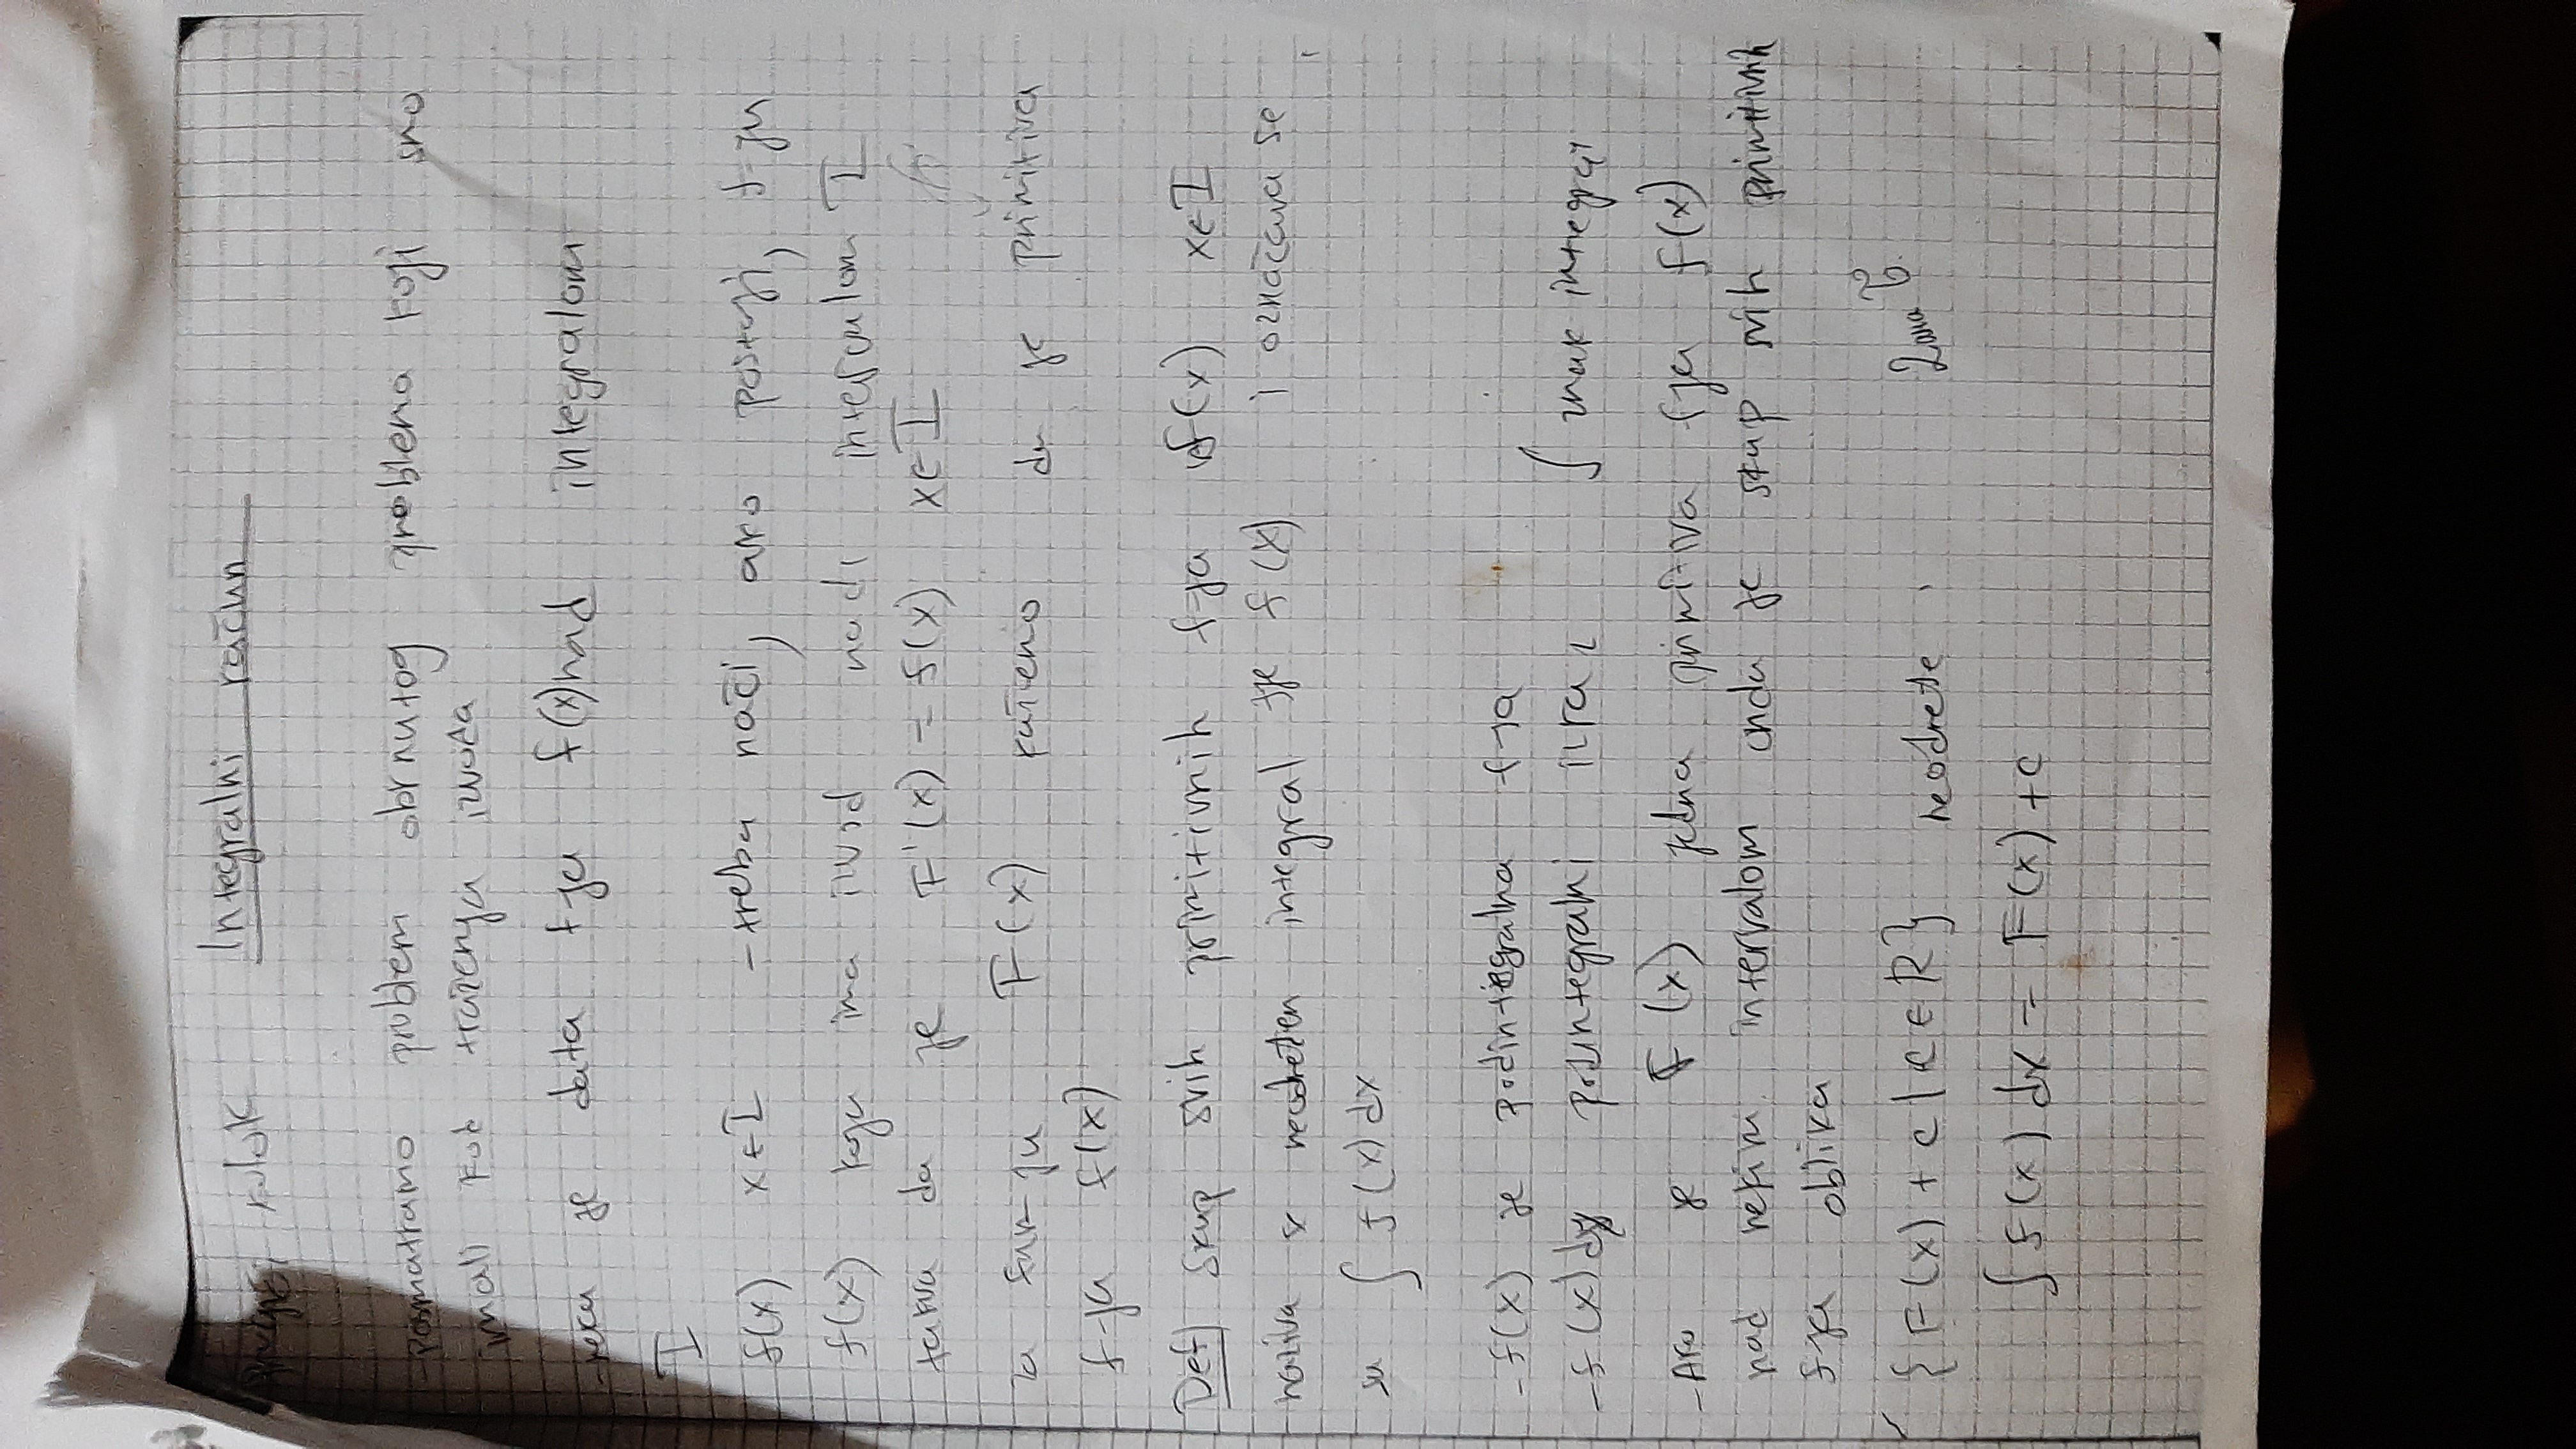 Integralni račun
kolok
-Posmatramo problem obrnutog problema koji smo
imali kod traženja izvoda
-neka je data f-ja f(x) nad integralom
I
f(x) x∈I -treba naći, ako postoji, f-ju
f(x) koja ima izvod nad intervalom I
takva da je F'(x) = f(x) x∈I
za funk-ju F(x) kažemo da je primitiva
f-ja f(x)
Def) Skup svih primitivnih f-ja f(x) x∈I
naziva se neodređen integral fje f(x) i označava se
sa ∫ f(x) dx
-f(x) je podintegralna f-ja
-f(x) dx podintegralni izraz ∫ znak integral
-Ako je F(x) jedna primitiva fja f(x)
nad nekim intervalom onda je skup svih primitivnih
f-ja oblika
{F(x) + c | c ∈ R} neodređe
∫ f(x) dx = F(x) + c